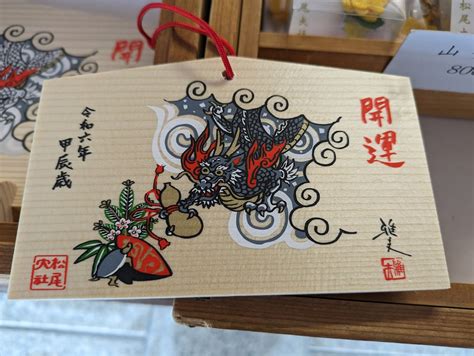 開運
令和六年
甲辰歳
松尾
大社
開
尾
山
80